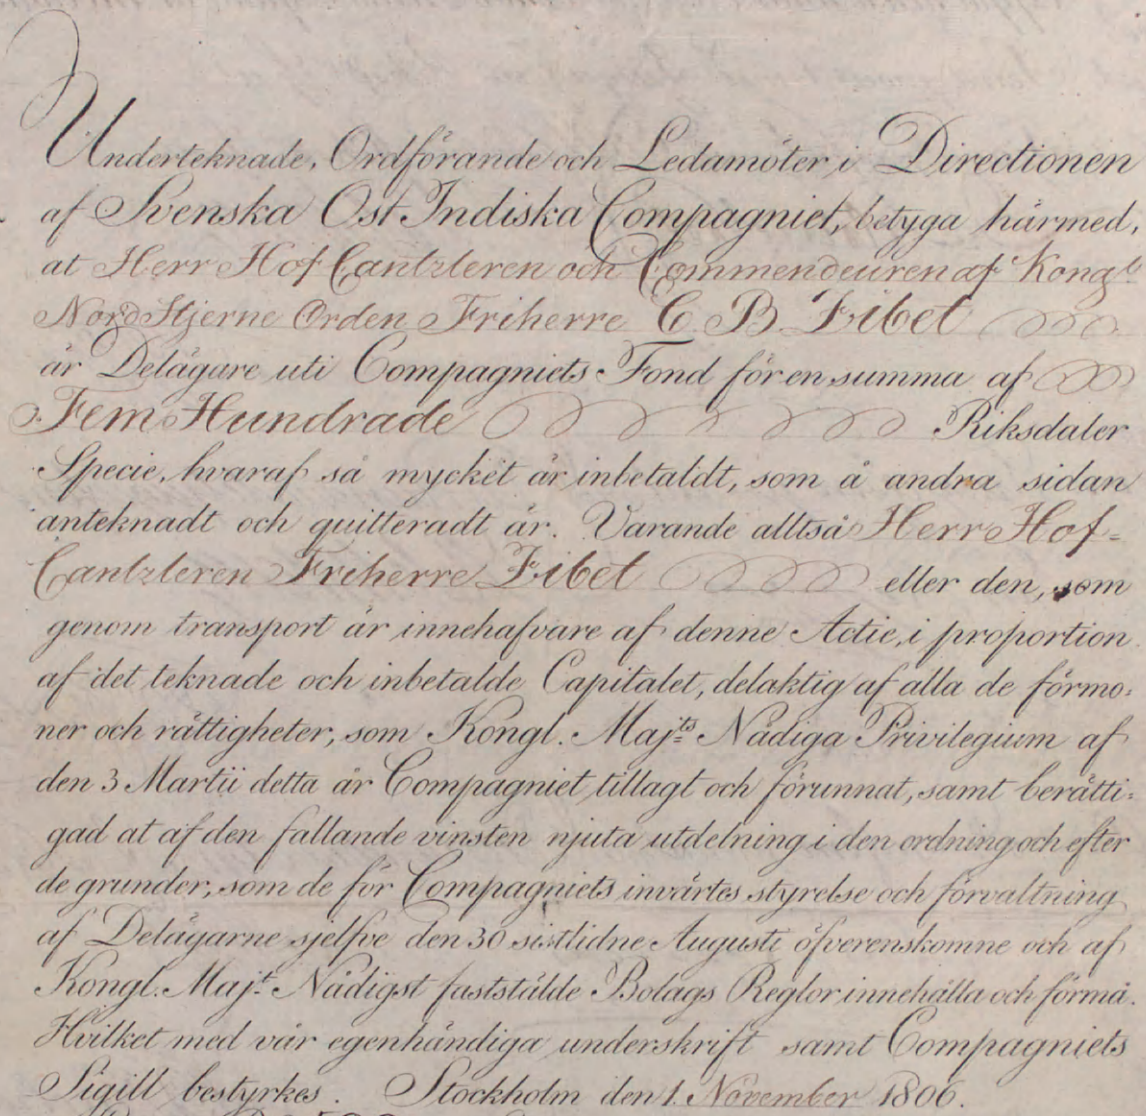 Underteknade, Ordförande och Ledamöter i Directionen
af Svenska Ost Indiska Compagniet, betyga härmed,
at Herr Hof Cantzleren och Commendeuren af Kongl.
Nord Stjerne Orden Friherre C. B. Zibet
är Delägare uti Compagniets Fond för en summa af
Fem Hundrade Riksdaler
Specie, hvaraf så mycket är inbetaldt, som å andra sidan
anteknadt och quitteradt är. Varande alltså Herr Hof-
Cantzleren Friherre Zibet eller den, som
genom transport är innehafvare af denne Actie, i proportion
af det teknade och inbetalde Capitalet, delaktig af alla de förmo-
ner och rättigheter, som Kongl. Maj:ts Nådiga Privilegium af
den 3 Martii detta år Compagniet tillagt och förunnat, samt berätti-
gad at af den fallande vinsten njuta utdelning i den ordning och efter
de grunder, som de för Compagniets invärtes styrelse och förvaltning
af Delägarne sjelfve den 30 sistlidne Augusti öfverenskomne och af
Kongl. Maj:t Nådigst faststälde Bolags Reglor innehålla och förmå.
Hvilket med vår egenhändiga underskrift samt Compagniets
Sigill bestyrkes. Stockholm den 1. November 1806.